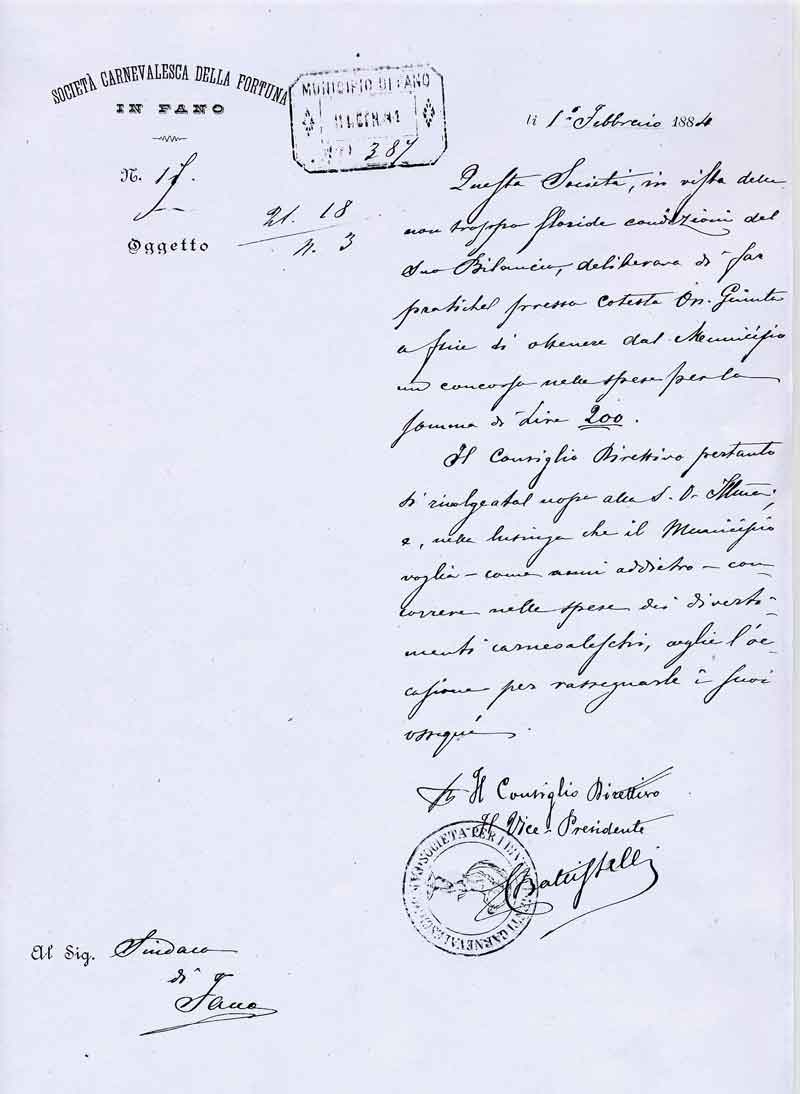 SOCIETÀ CARNEVALESCA DELLA FORTUNA
IN FANO
MUNICIPIO DI FANO
387
li 1º Febbraio 1884
N. 17.
Tit. 18
n. 3
Oggetto
Questa Società, in vista delle
non troppo floride condizioni del
suo Bilancio, deliberava di far
pratiche presso cotesta On. Giunta
a fine di ottenere dal Municipio
un concorso nelle spese per la
somma di Lire 200.
Il Consiglio Direttivo pertanto
si rivolge a tal uopo alla S. V. Illma;
e, nella lusinga che il Municipio
voglia – come anni addietro – con-
correre nelle spese dei diverti-
menti carnevaleschi, coglie l'oc-
casione per rassegnarle i suoi
ossequi.
Il Consiglio Direttivo
Il Vice-Presidente
Battistelli
SOCIETÀ PER I DIVERTIMENTI CARNEVALESCHI
Al Sig. Sindaco
di
Fano